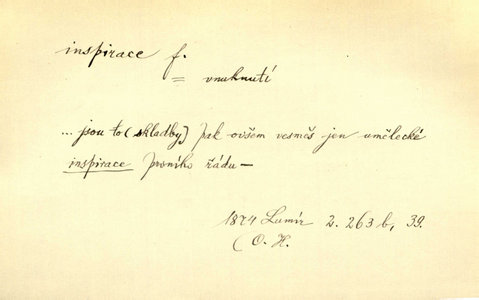 inspirace f.
= vnuknutí
... jsou to (skladby) pak ovšem vesměs jen umělecké
inspirace prvního řádu —
1874 Lumír 2. 263 b, 39.
(O. H.